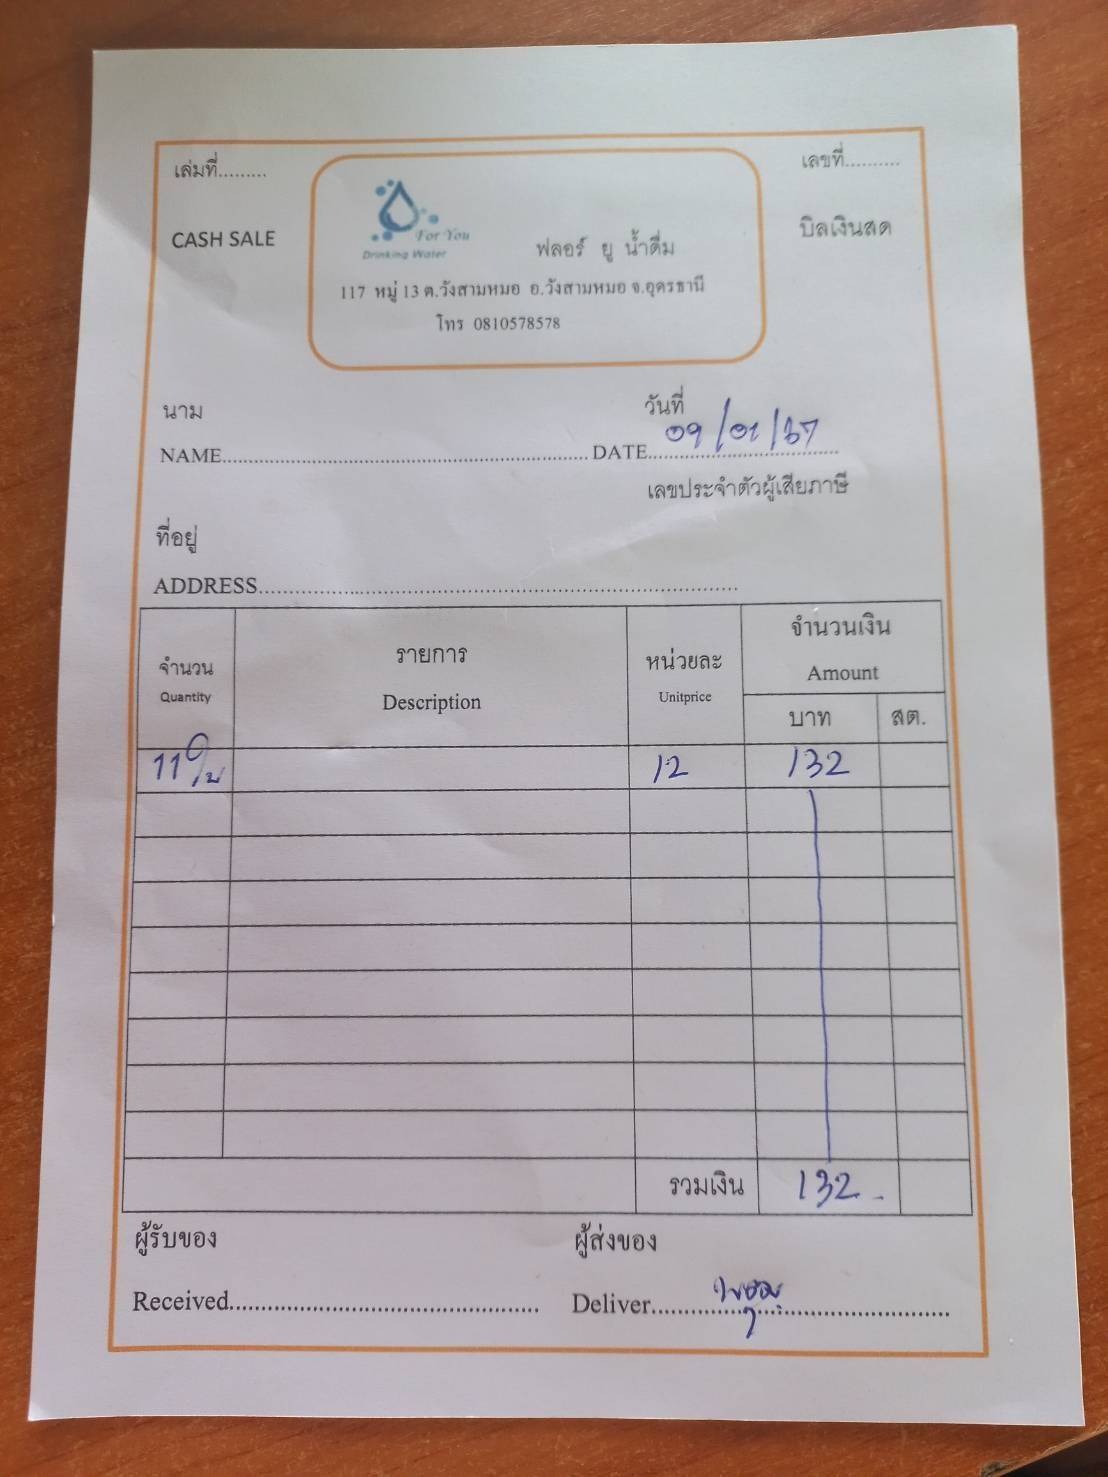 เล่มที่.........
เลขที่..........
CASH SALE
บิลเงินสด
For You
Drinking Water
ฟลอร์ ยู น้ำดื่ม
117 หมู่ 13 ต.วังสามหมอ อ.วังสามหมอ จ.อุดรธานี
โทร 0810578578
นาม
วันที่
NAME.......... DATE.......... 09/01/67
เลขประจำตัวผู้เสียภาษี
ที่อยู่
ADDRESS..........
จำนวน รายการ หน่วยละ จำนวนเงิน
Quantity Description Unitprice Amount
บาท สต.
11 ใบ 12 132
รวมเงิน 132 -
ผู้รับของ ผู้ส่งของ
Received.......... Deliver..........